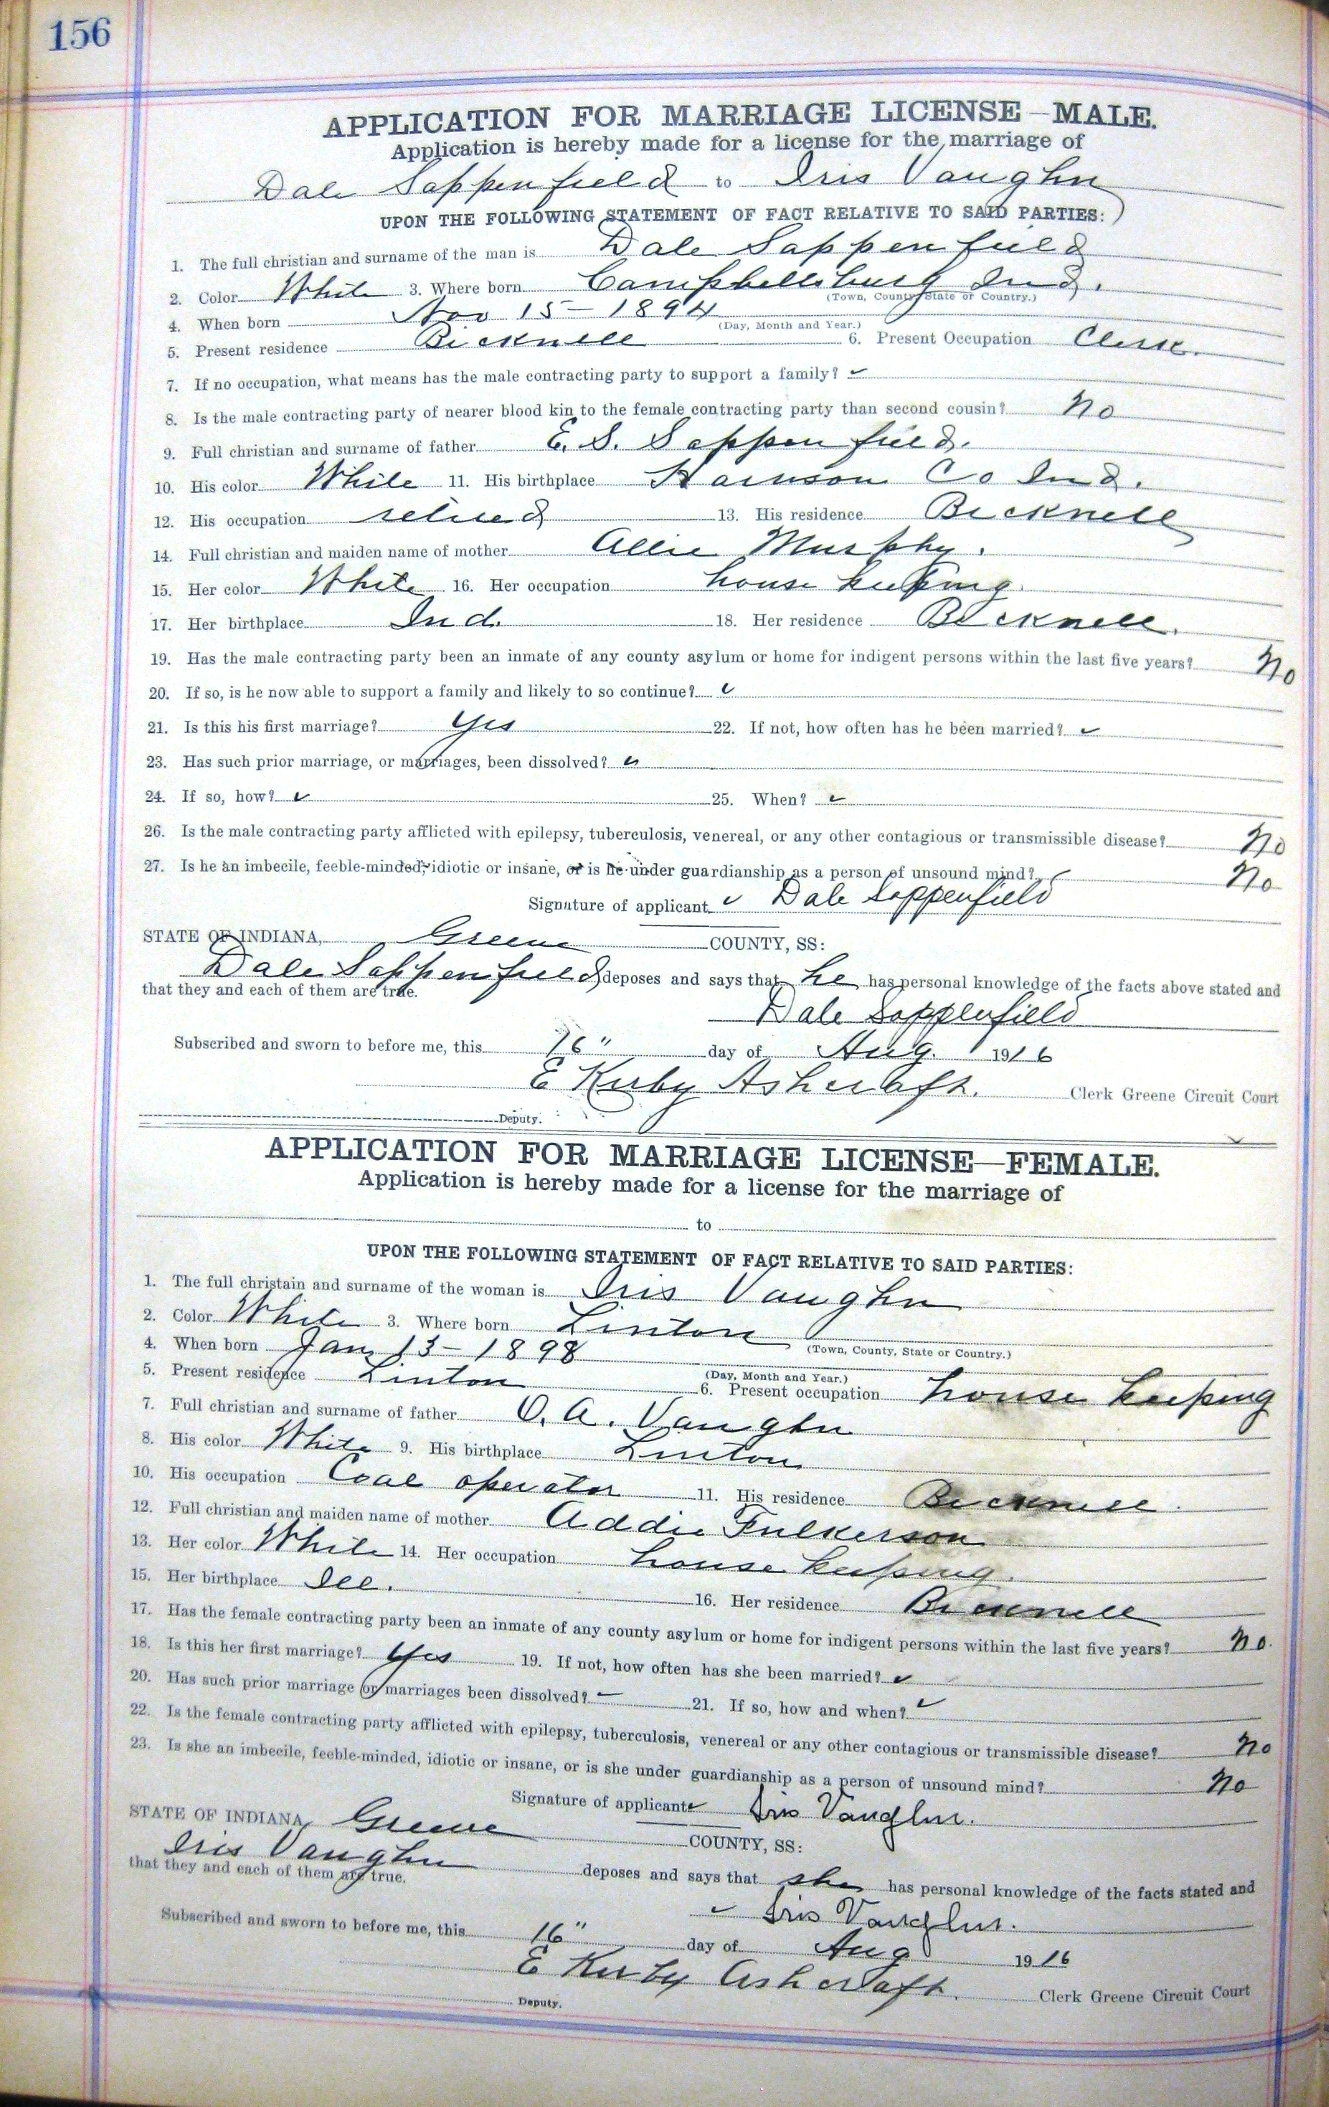 156
APPLICATION FOR MARRIAGE LICENSE—MALE.
Application is hereby made for a license for the marriage of
Dale Sappenfield to Iris Vaughn
UPON THE FOLLOWING STATEMENT OF FACT RELATIVE TO SAID PARTIES:
1. The full christian and surname of the man is Dale Sappenfield
2. Color White 3. Where born Campbellsburg Ind.
(Town, County, State or Country.)
4. When born Nov 15 - 1894
(Day, Month and Year.)
5. Present residence Bicknell 6. Present Occupation Clerk.
7. If no occupation, what means has the male contracting party to support a family? ✓
8. Is the male contracting party of nearer blood kin to the female contracting party than second cousin? No
9. Full christian and surname of father E. S. Sappenfield.
10. His color White 11. His birthplace Harrison Co Ind.
12. His occupation retired 13. His residence Bicknell
14. Full christian and maiden name of mother Allie Murphy.
15. Her color White 16. Her occupation house keeping
17. Her birthplace Ind. 18. Her residence Bicknell.
19. Has the male contracting party been an inmate of any county asylum or home for indigent persons within the last five years? No
20. If so, is he now able to support a family and likely to so continue? ✓
21. Is this his first marriage? Yes 22. If not, how often has he been married? ✓
23. Has such prior marriage, or marriages, been dissolved? ✓
24. If so, how? ✓ 25. When? ✓
26. Is the male contracting party afflicted with epilepsy, tuberculosis, venereal, or any other contagious or transmissible disease? No
27. Is he an imbecile, feeble-minded, idiotic or insane, or is he under guardianship as a person of unsound mind? No
Signature of applicant ✓ Dale Sappenfield
STATE OF INDIANA, Greene COUNTY, SS:
Dale Sappenfield deposes and says that he has personal knowledge of the facts above stated and
that they and each of them are true.
Dale Sappenfield
Subscribed and sworn to before me, this 16" day of Aug. 1916
E Kirby Ashcraft. Clerk Greene Circuit Court
Deputy.
APPLICATION FOR MARRIAGE LICENSE—FEMALE.
Application is hereby made for a license for the marriage of
to
UPON THE FOLLOWING STATEMENT OF FACT RELATIVE TO SAID PARTIES:
1. The full christain and surname of the woman is Iris Vaughn
2. Color White 3. Where born Linton
(Town, County, State or Country.)
4. When born Jan 13 - 1898
(Day, Month and Year.)
5. Present residence Linton 6. Present occupation house keeping
7. Full christian and surname of father O. A. Vaughn
8. His color White 9. His birthplace Linton
10. His occupation Coal operator 11. His residence Bicknell.
12. Full christian and maiden name of mother Addie Fulkerson
13. Her color White 14. Her occupation house keeping.
15. Her birthplace Ill. 16. Her residence Bicknell
17. Has the female contracting party been an inmate of any county asylum or home for indigent persons within the last five years? No.
18. Is this her first marriage? Yes 19. If not, how often has she been married? ✓
20. Has such prior marriage or marriages been dissolved? ✓ 21. If so, how and when? ✓
22. Is the female contracting party afflicted with epilepsy, tuberculosis, venereal or any other contagious or transmissible disease? No
23. Is she an imbecile, feeble-minded, idiotic or insane, or is she under guardianship as a person of unsound mind? No
Signature of applicant ✓ Iris Vaughn.
STATE OF INDIANA, Greene COUNTY, SS:
Iris Vaughn deposes and says that she has personal knowledge of the facts stated and
that they and each of them are true.
✓ Iris Vaughn.
Subscribed and sworn to before me, this 16" day of Aug 1916
E Kirby Ashcraft. Clerk Greene Circuit Court
Deputy.